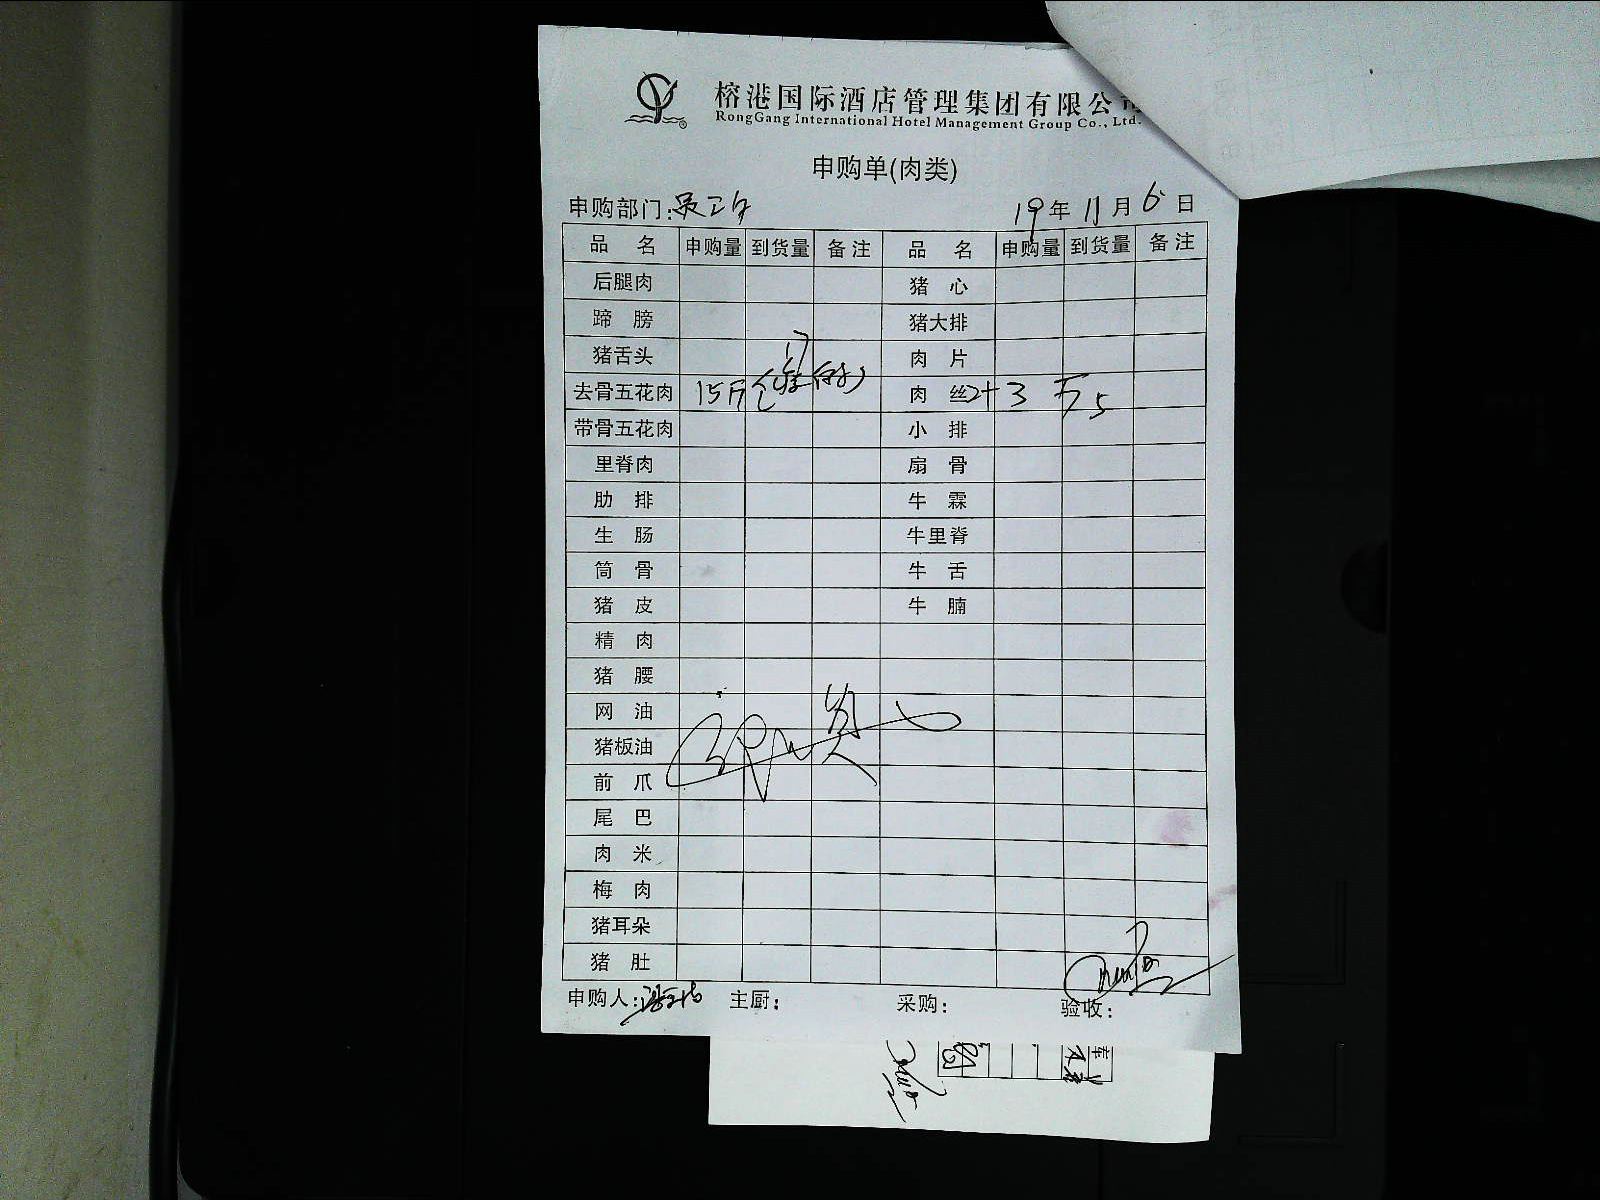 榕港国际酒店管理集团有限公司
RongGang International Hotel Management Group Co., Ltd.
申购单(肉类)
申购部门: 19年11月6日
品名 申购量 到货量 备注 品名 申购量 到货量 备注
后腿肉 猪心
蹄膀 猪大排
猪舌头 肉片
去骨五花肉 15斤 肉丝 3
带骨五花肉 小排
里脊肉 扇骨
肋排 牛霖
生肠 牛里脊
筒骨 牛舌
猪皮 牛腩
精肉
猪腰
网油
猪板油
前爪
尾巴
肉米
梅肉
猪耳朵
猪肚
申购人: 主厨: 采购: 验收: